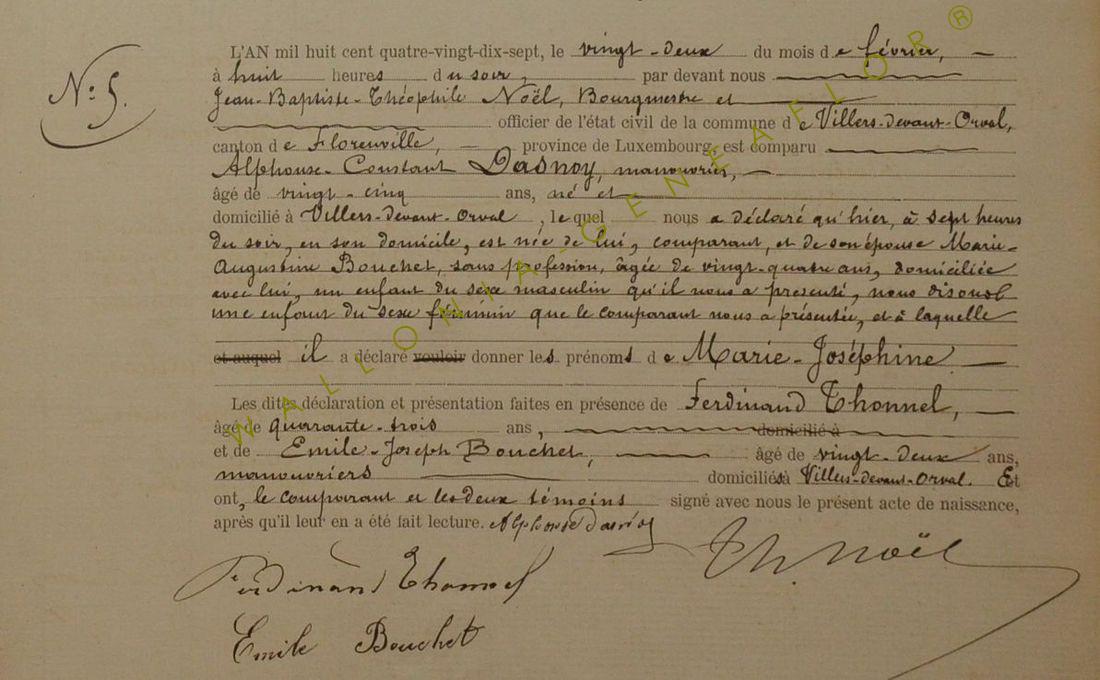 Nº 5.
L'AN mil huit cent quatre-vingt-dix-sept, le vingt-deux du mois de février,
à huit heures du soir, par devant nous
Jean-Baptiste-Théophile Noël, Bourgmestre et
officier de l'état civil de la commune de Villers-devant-Orval,
canton de Florenville, province de Luxembourg, est comparu
Alphonse-Constant Dasnoy, manouvrier,
âgé de vingt-cinq ans, né et
domicilié à Villers-devant-Orval, lequel nous a déclaré qu'hier, à sept heures
du soir, en son domicile, est née de lui, comparant, et de son épouse Marie-
Augustine Bouchet, sans profession, âgée de vingt-quatre ans, domiciliée
avec lui, un enfant du sexe masculin qu'il nous a presenté, nous disons
une enfant du sexe féminin que le comparant nous a présentée, et à laquelle
et auquel il a déclaré vouloir donner les prénoms de Marie-Joséphine
Les dites déclaration et présentation faites en présence de Ferdinand Thonnel,
âgé de quarante-trois ans, domicilié à
et de Emile-Joseph Bouchet, âgé de vingt-deux ans,
manouvriers domiciliés à Villers-devant-Orval. Et
ont, le comparant et les deux témoins signé avec nous le présent acte de naissance,
après qu'il leur en a été fait lecture. Alphonse Dasnoy
Th. Noël
Ferdinand Thonnel
Emile Bouchet
WALLONIA-GENEAFLOR®